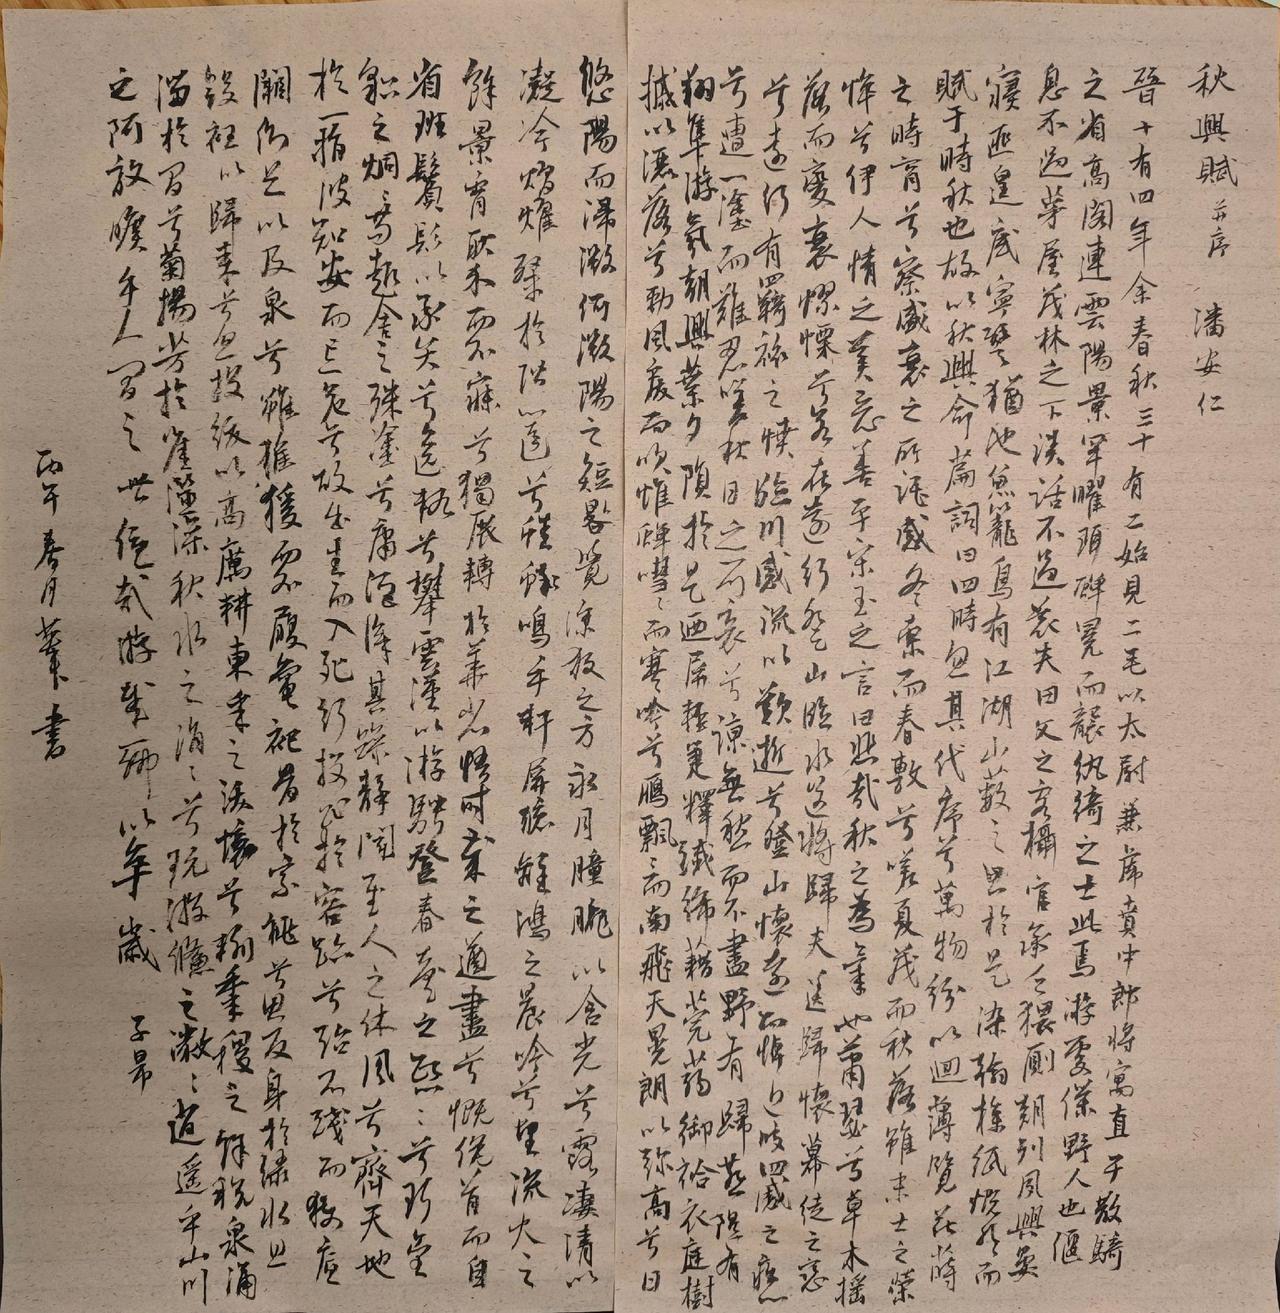 秋興賦并序 潘安仁
晉十有四年余春秋三十有二始見二毛以太尉兼虎賁中郎將寓直于散騎
之省高閣連雲陽景罕曜珥蟬冕而襲紈綺之士此焉游處僕野人也偃
息不過茅屋茂林之下談話不過農夫田父之客攝官承乏猥廁朝列夙興晏
寢匪遑底寧譬猶池魚籠鳥有江湖山藪之思於是染翰操紙慨然而
賦于時秋也故以秋興命篇詞曰四時忽其代序兮萬物紛以迴薄覽花蒔
之時育兮察盛衰之所託感冬索而春敷兮嗟夏茂而秋落雖末士之榮
悴兮伊人情之美惡善乎宋玉之言曰悲哉秋之為氣也蕭瑟兮草木搖
落而變衰憀慄兮若在遠行登山臨水送將歸夫送歸懷慕徒之戀
兮遠行有羈旅之憤臨川感流以歎逝兮登山懷遠而悼近彼四感之疚心
兮遭一塗而難忍嗟秋日之可哀兮諒無愁而不盡野有歸燕隰有
翔隼游氛朝興槀葉夕隕於是迺屏輕箑釋纖絺藉莞蒻御袷衣庭樹
摵以灑落兮勁風戾而吹帷蟬嘒嘒而寒吟兮鴈飄飄而南飛天晃朗以弥高兮日
悠陽而浸微何微陽之短晷覺涼夜之方永月朣朧以含光兮露凄清以
凝冷熠燿粲於階闥兮蟋蟀鳴乎軒屏聽離鴻之晨吟兮望流火之
餘景宵耿介而不寐兮獨展轉於華省悟時歲之遒盡兮慨俛首而自
省斑鬢髟以承弁兮逸 兮攀雲漢以游騁登春臺之熙熙兮珥金
貂之炯炯苟趣舍之殊塗兮庸詎 其躁靜聞至人之休風兮齊天地
於一指彼知安而亡危兮故出生而入死行投 於容跡兮殆不踐而獲底
闕側足以及泉兮雖猴猨而不履龜祀骨於宗祧兮思反身於綠水且
斂衽以歸來兮忽投紱以高厲耕東皋之沃壤兮 黍稷之餘稅泉涌
湍於 間兮菊揚芳於崖澨澡秋水之涓涓兮玩游儵之潎潎逍遥乎山川
之阿放曠乎人間之世優哉游哉聊以卒歲 子昂
丙午春月 書